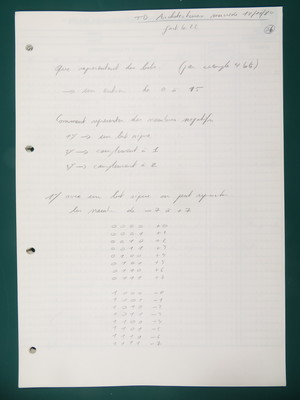 TD Architecture
Que représentent des bits. (par exemple 4 bits)
=> un entier de 0 à 15
Comment représenter des nombres négatifs
1) => un bit signe
2) => complément à 1
3) => complément à 2
1) avec un bit signe on peut représenter
des nombres de -7 à +7
0000 +0
0001 +1
0010 +2
0011 +3
0100 +4
0101 +5
0110 +6
0111 +7
1000 -0
1001 -1
1010 -2
1011 -3
1100 -4
1101 -5
1110 -6
1111 -7